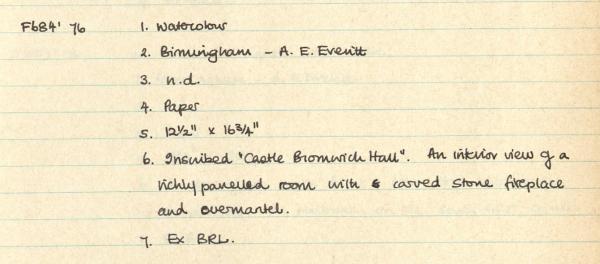 F684' 76 1. Watercolour
2. Birmingham - A. E. Everitt
3. n.d.
4. Paper
5. 12½" x 16¾"
6. Inscribed "Castle Bromwich Hall". An interior view of a
richly panelled room with carved stone fireplace
and overmantel.
7. Ex BRL.